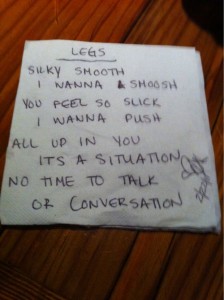 LEGS
SILKY SMOOTH
I WANNA SMOOSH
YOU FEEL SO SLICK
I WANNA PUSH
ALL UP IN YOU
ITS A SITUATION
NO TIME TO TALK
OR CONVERSATION